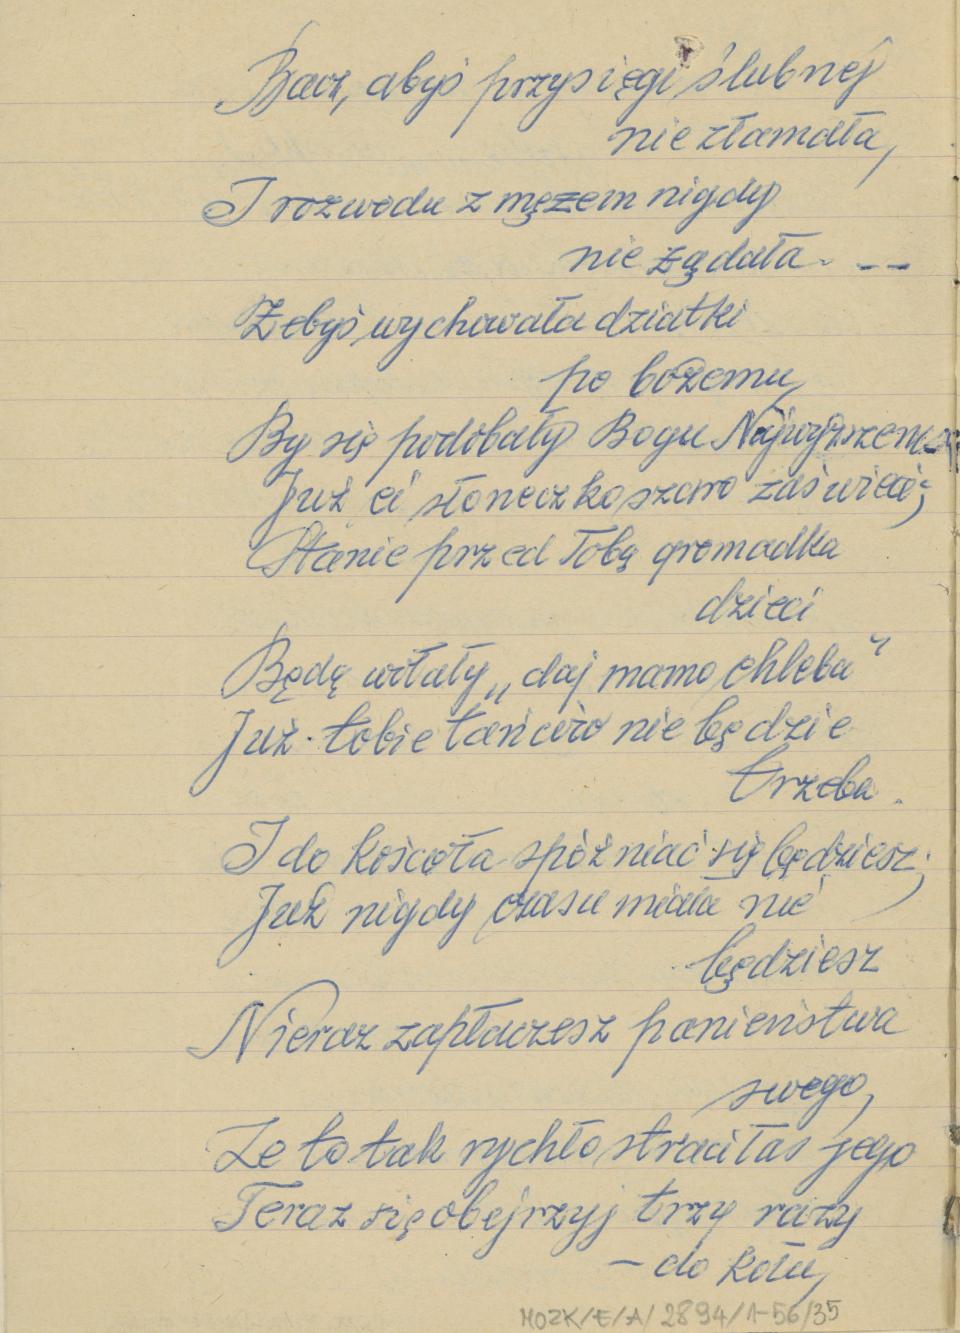 Bacz, abyś przysięgi ślubnej
nie złamała,
I rozwodu z mężem nigdy
nie żądała. --
Żebyś wychowała dziatki
po bożemu,
By się podobały Bogu Najwyższemu
Już ci słoneczko szaro zaświeci;
Stanie przed Tobą gromadka
dzieci
Będą wołały „daj mamo chleba"
Już tobie tańców nie będzie
trzeba.
I do kościoła spóźniać się będziesz;
Już nigdy czasu miała nie
będziesz
Nieraz zapłaczesz panieństwa
swego,
Że to tak rychło straciłaś jego
Teraz się obejrzyj trzy razy
- do koła,
MOZK/E/A/2894/1-56/35